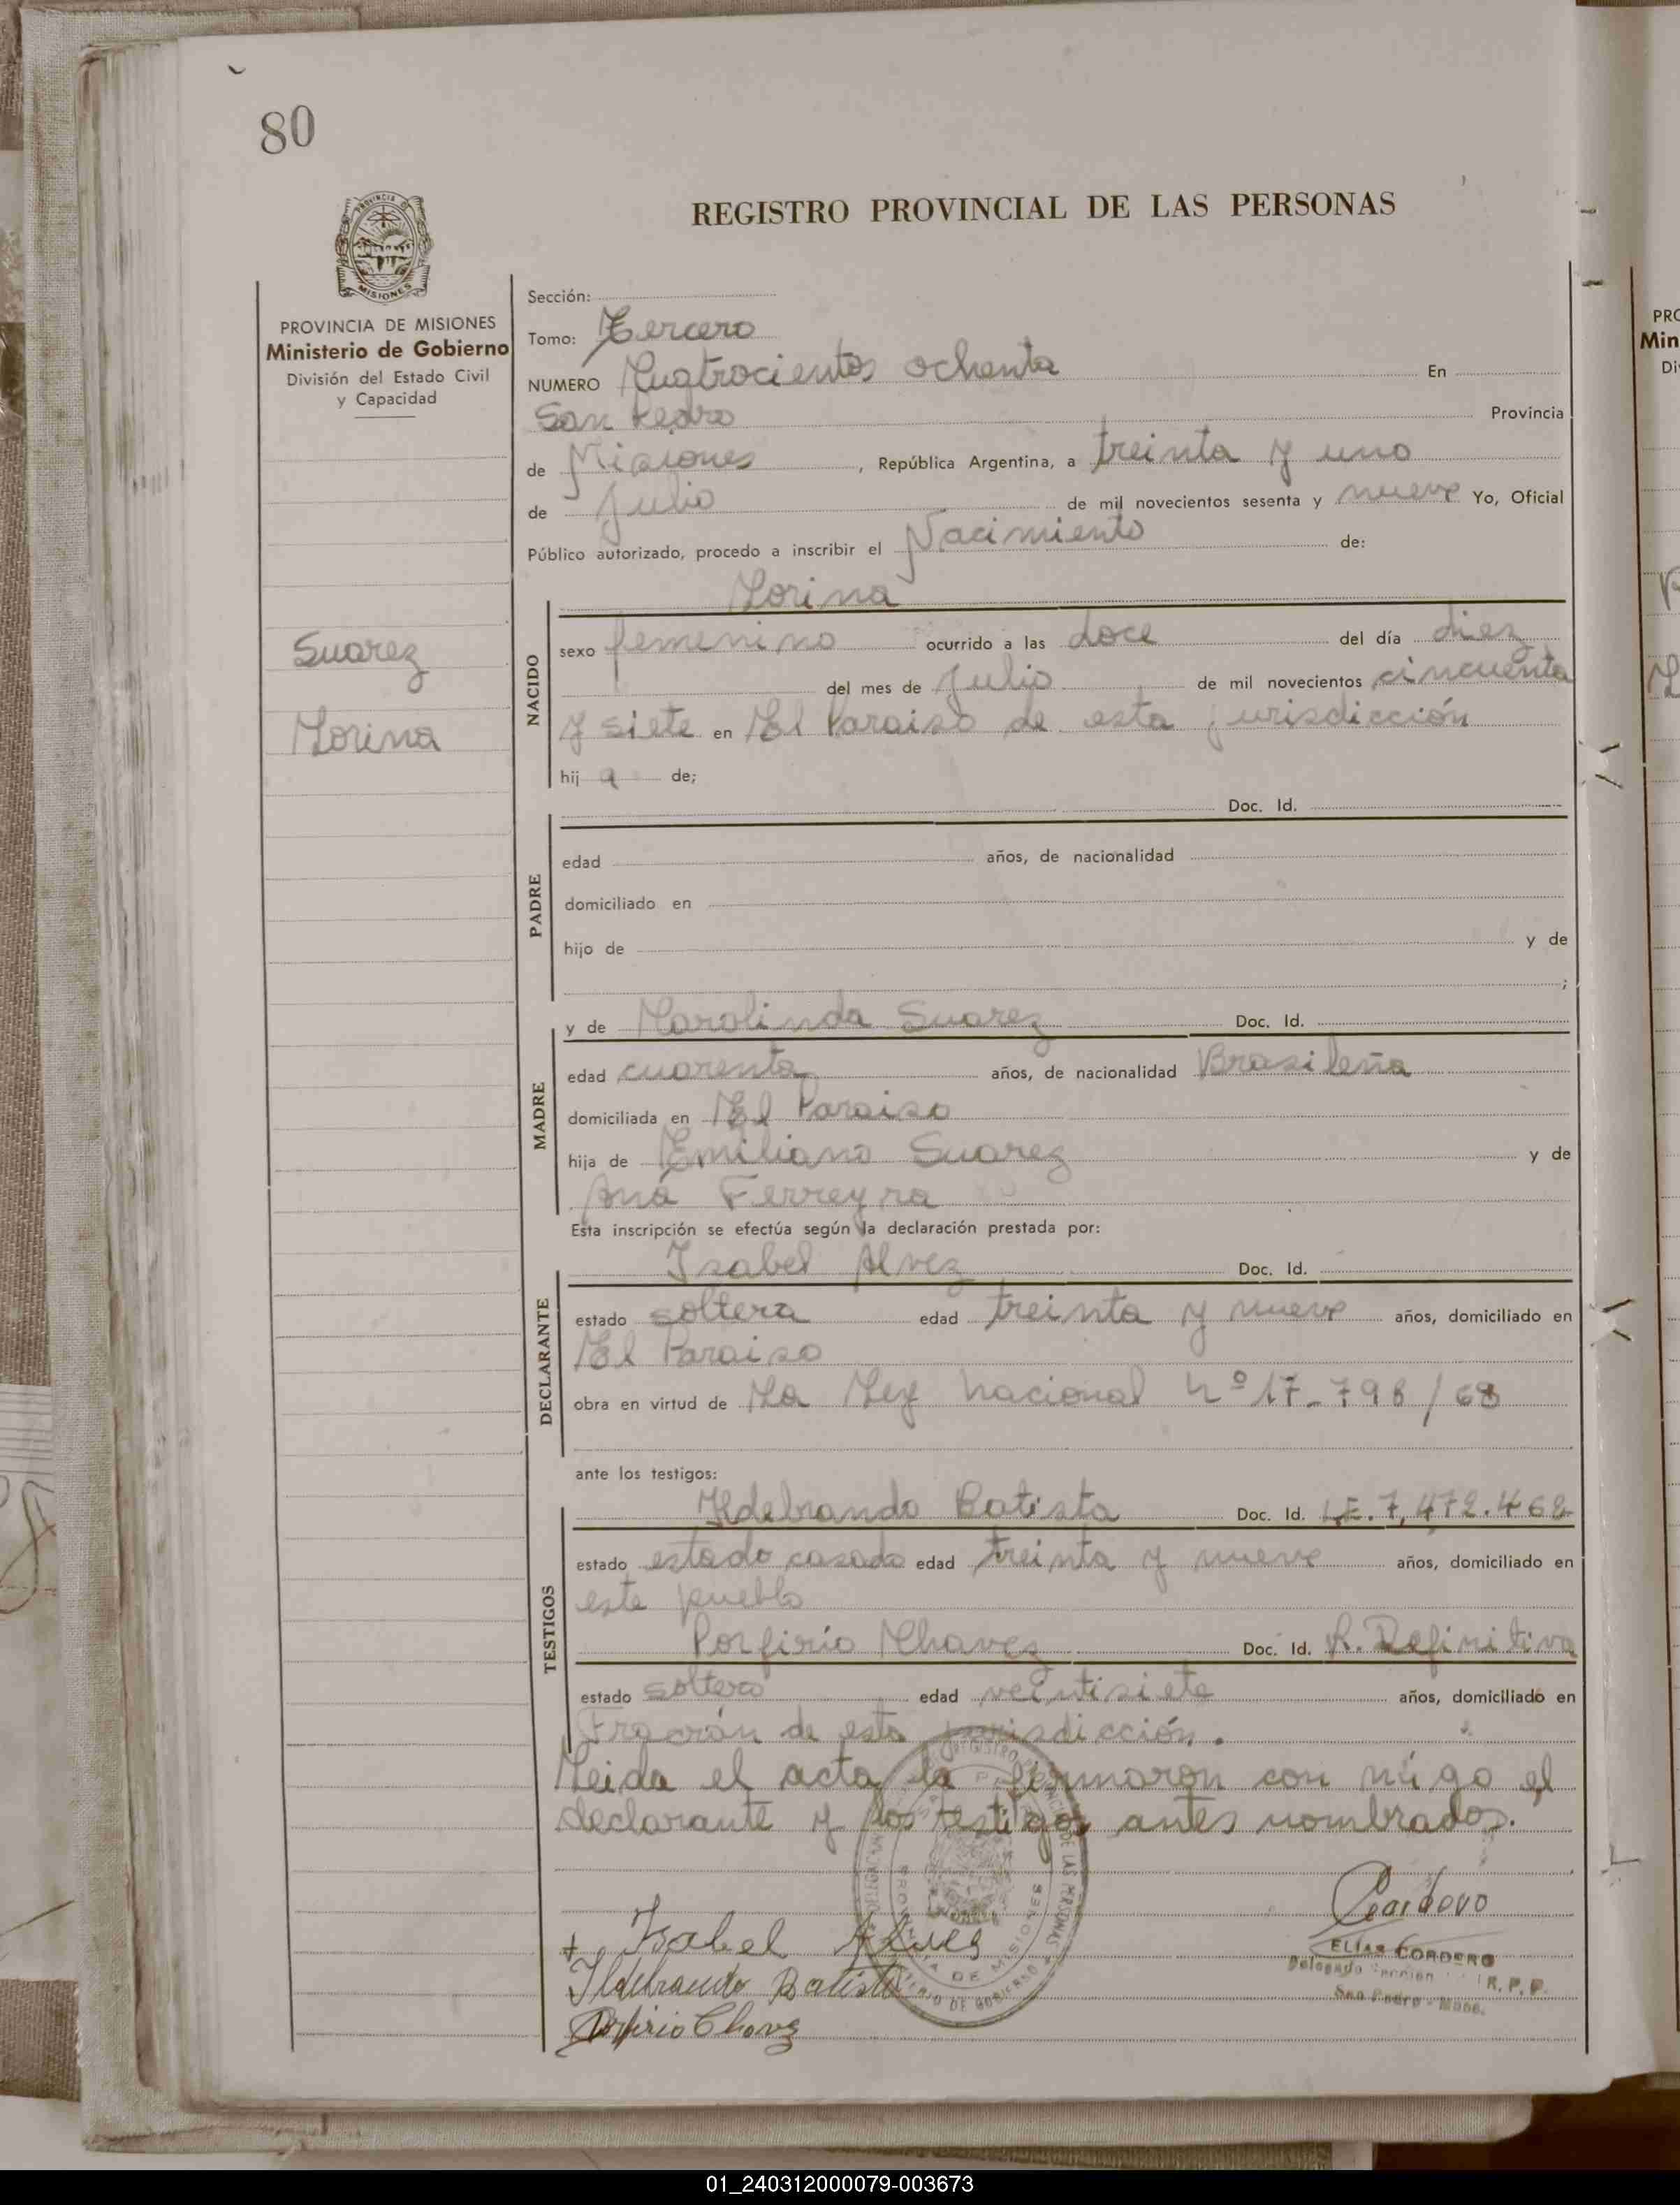 80
REGISTRO PROVINCIAL DE LAS PERSONAS
PROVINCIA DE MISIONES
Ministerio de Gobierno
División del Estado Civil
y Capacidad
Suarez
Lorina
Sección:
Tomo: Tercero
NUMERO Cuatrocientos ochenta En
San Pedro Provincia
de Misiones, República Argentina, a treinta y uno
de Julio de mil novecientos sesenta y nueve Yo, Oficial
Público autorizado, procedo a inscribir el Nacimiento de:
Lorina
NACIDO
sexo femenino ocurrido a las doce del día diez
del mes de Julio de mil novecientos cincuenta
y siete en El Paraiso de esta jurisdicción
hij a de;
Doc. Id.
PADRE
edad años, de nacionalidad
domiciliado en
hijo de y de
;
y de Carolinda Suarez Doc. Id.
MADRE
edad cuarenta años, de nacionalidad Brasileña
domiciliada en El Paraiso
hija de Emiliano Suarez y de
Ana Ferreyra
Esta inscripción se efectúa según la declaración prestada por:
Isabel Alvez Doc. Id.
DECLARANTE
estado soltera edad treinta y nueve años, domiciliado en
El Paraiso
obra en virtud de La Ley Nacional Nº 17-798/68
ante los testigos:
Ildebrando Batista Doc. Id. L.E. 7.472.468
TESTIGOS
estado estado casado edad treinta y nueve años, domiciliado en
este pueblo
Porfirio Chavez Doc. Id. R. Definitiva
estado soltero edad veintisiete años, domiciliado en
Fracrán de esta jurisdicción.
Leida el acta la firmaron con migo el
declarante y los testigos antes nombrados.
Isabel Alves
Ildebrando Batista
Porfirio Chavez
Cordero
ELIAS CORDERO
R. P. P.
San Pedro - Mnes.
PROVINCIA DE MISIONES
01_240312000079-003673